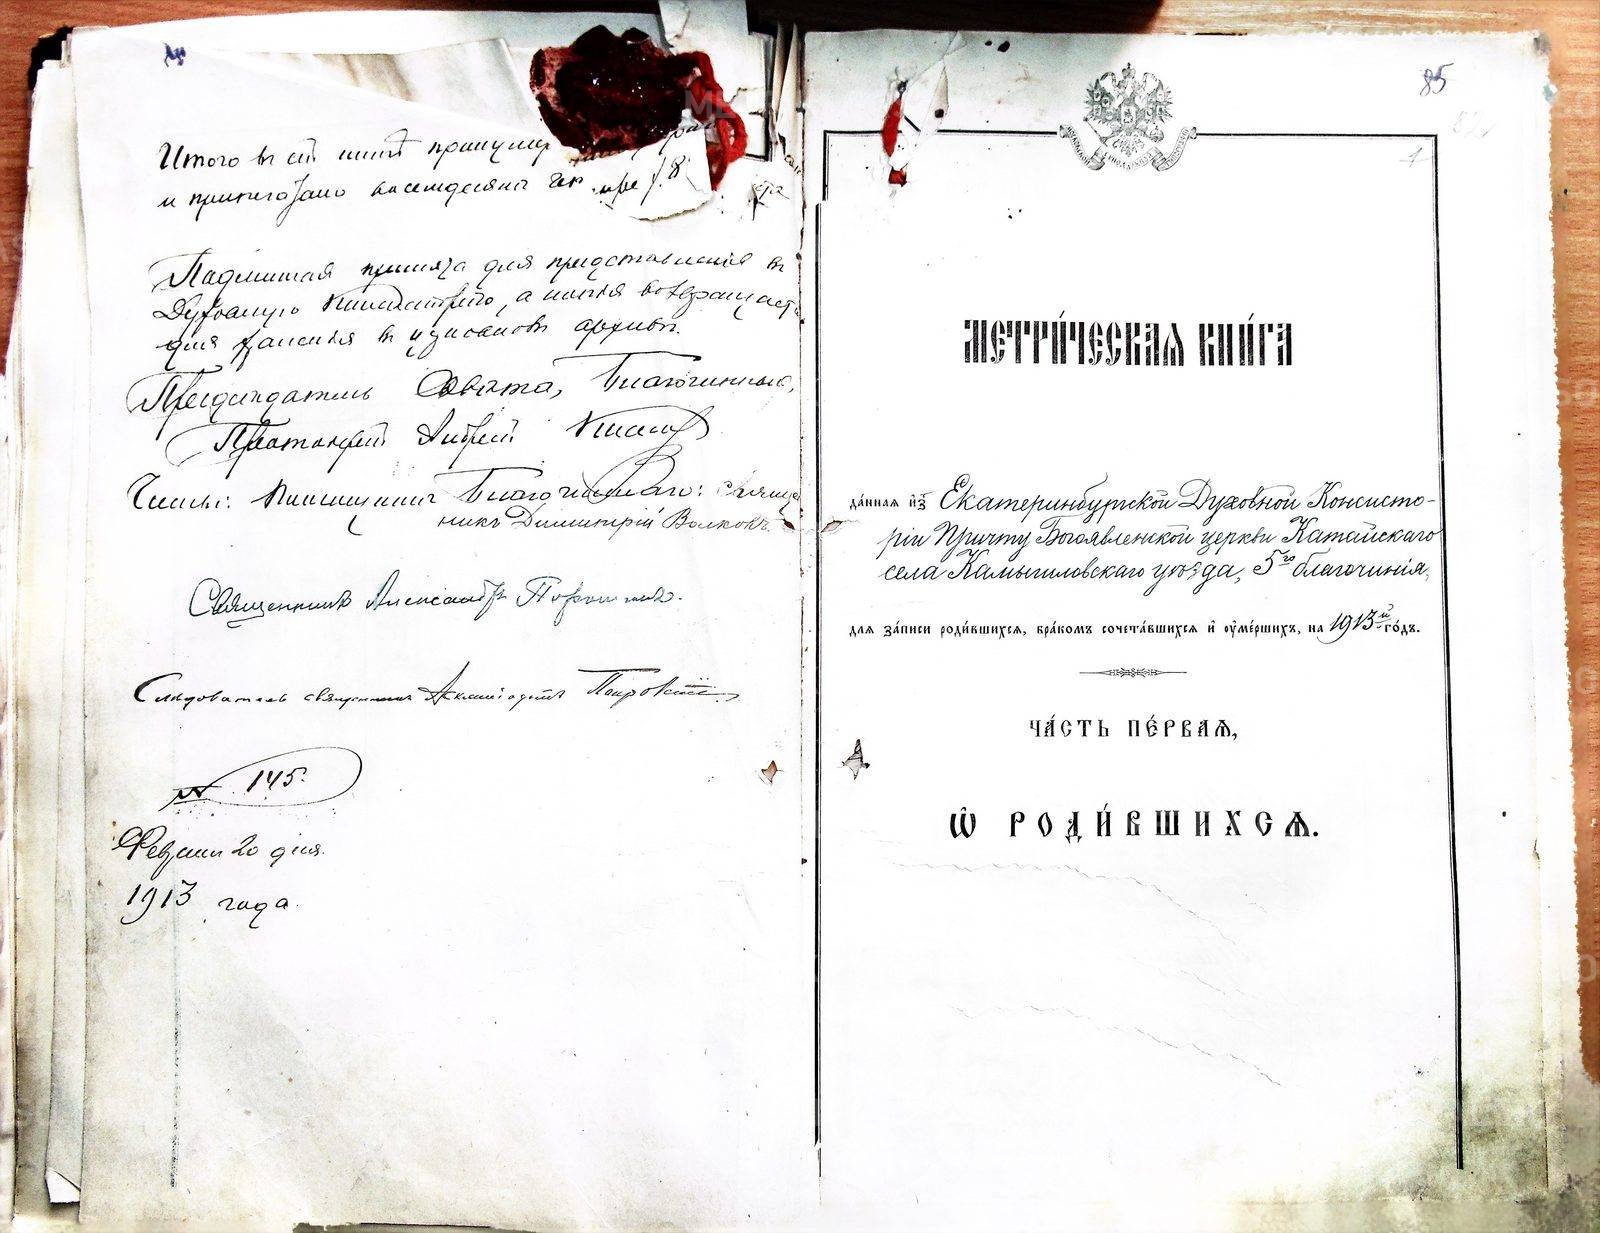 Итого въ сей книгѣ пронумер
и припечатано восемьдесятъ чет
Подлинная принята для представленія въ
Духовную Консисторію, а копія возвращается
для храненія въ церковн архивъ.
Предсѣдатель Совѣта, Благочинный,
Протоіерей Андрей
Члены: Помощникъ Благочиннаго: священ
никъ Димитрій Волковъ
Священникъ Александръ
Слѣдователь священникъ Покровскій
№ 145.
Февраля 20 дня.
1913 года.
85
1
МЕТРИ́ЧЕСКАѦ КНИ́ГА
да́ннаѧ и҆з̾ Екатеринбургской Духовной Консисто-
ріи Причту Богоявленской церкви Катайскаго
села Камышловскаго уѣзда, 5го благочинія,
длѧ за́писи роди́вшихсѧ, бра́комъ сочета́вшихсѧ и҆ ᲂу҆ме́ршихъ, на 1913й го́дъ.
ЧА́СТЬ ПЕ́РВАѦ,
Ѽ РОДИ́ВШИХСѦ.